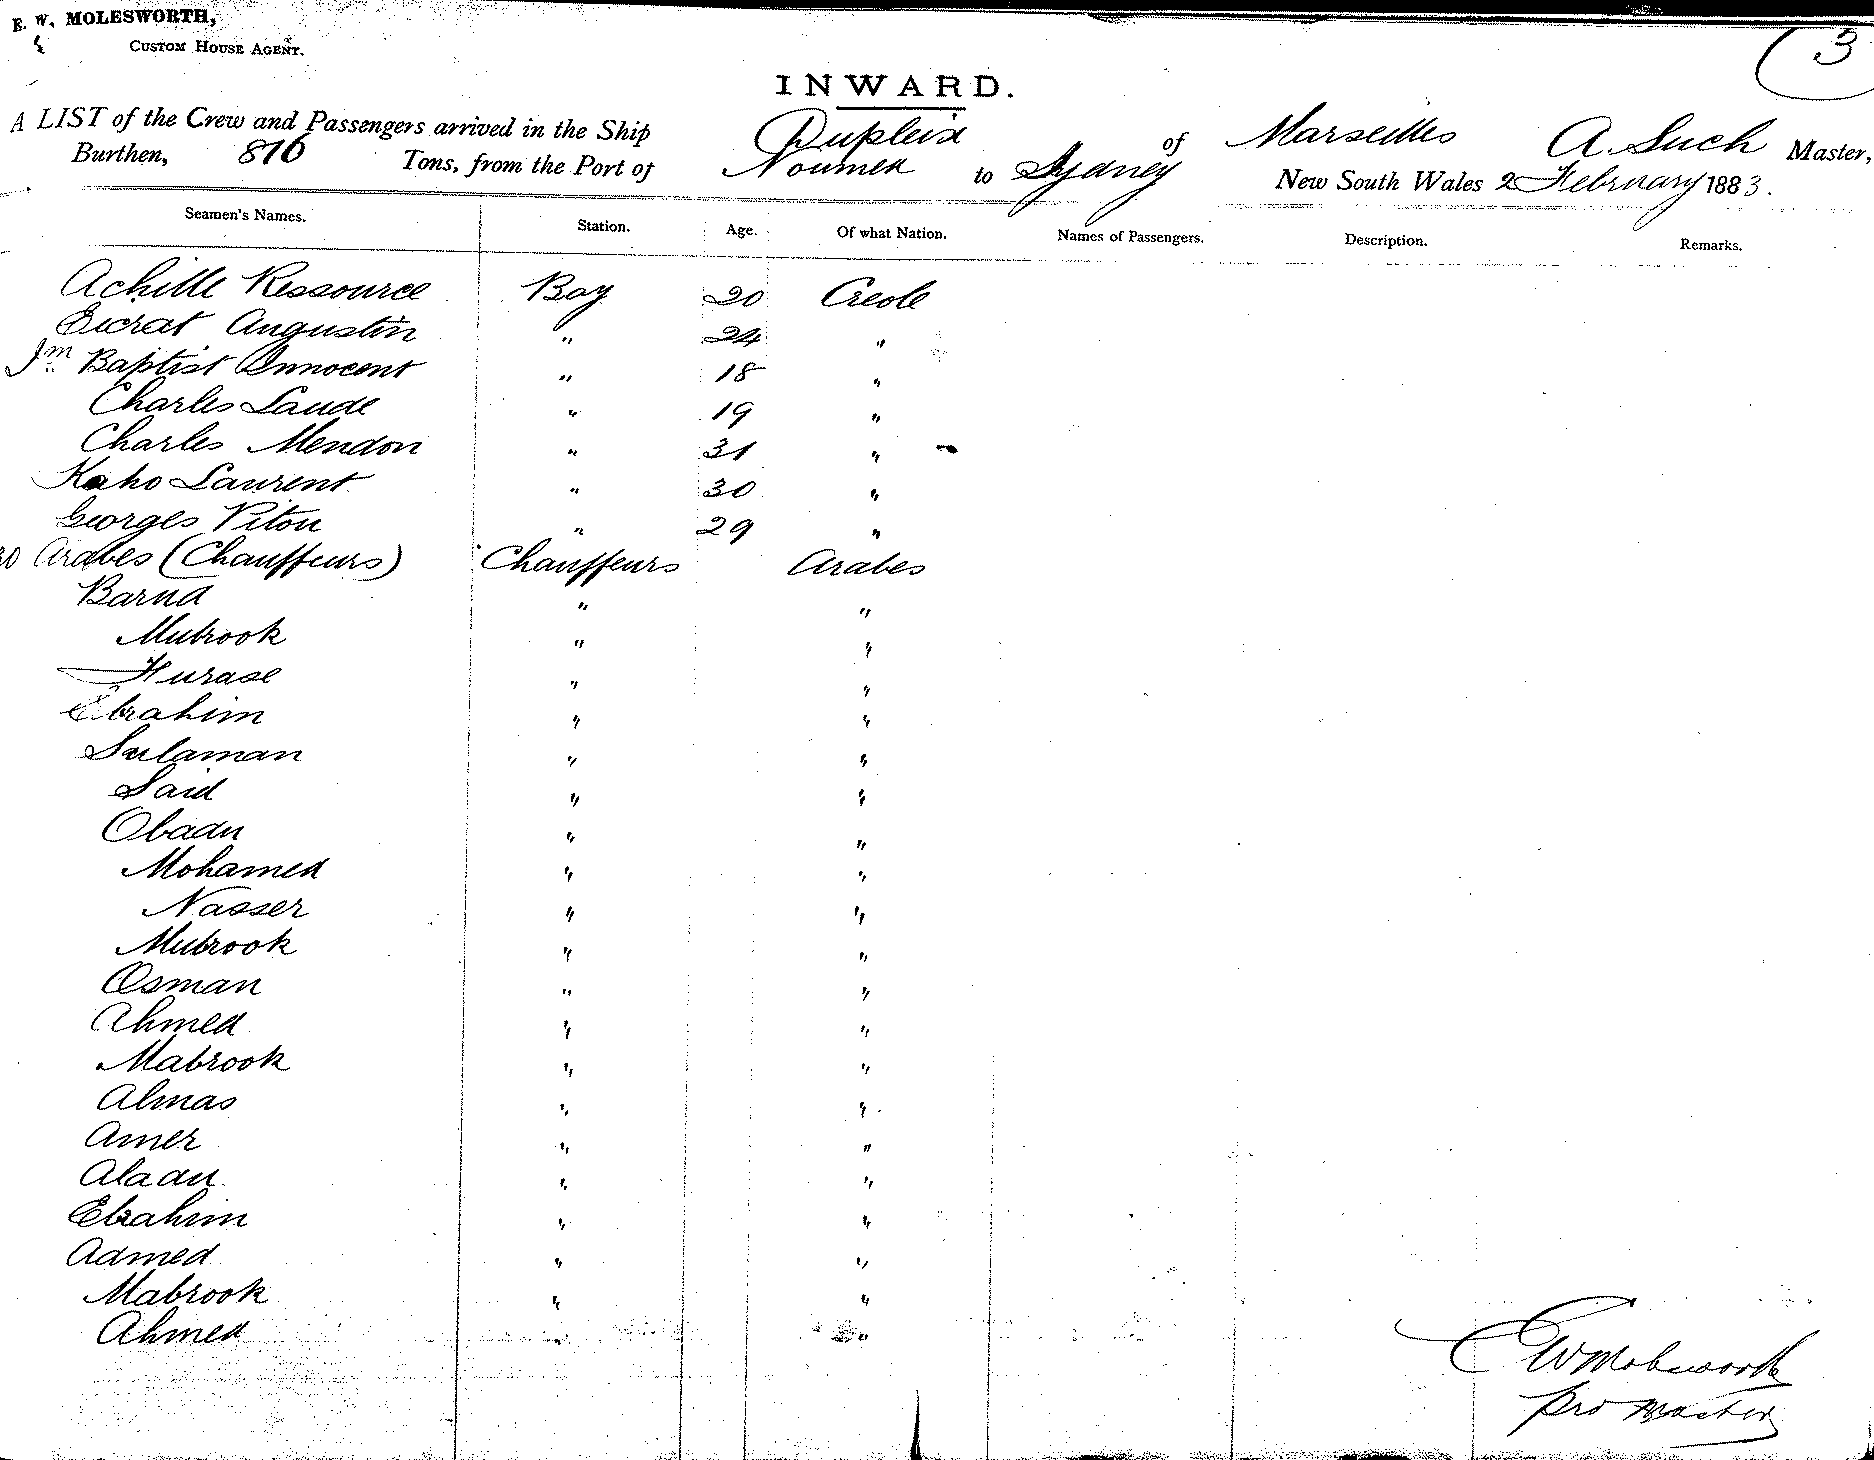 E. W. MOLESWORTH,
CUSTOM HOUSE AGENT.
3
INWARD.
A LIST of the Crew and Passengers arrived in the Ship Dupleix of Marseilles A. Such Master,
Burthen, 876 Tons, from the Port of Noumea to Sydney New South Wales 2 February 1883.
Seamen's Names. Station. Age. Of what Nation. Names of Passengers. Description. Remarks.
Achille Ressource Boy 20 Creole
Sucrat Augustin " 24 "
Jm Baptist Innocent " 18 "
Charles Laude " 19 "
Charles Mendon " 31 "
Kaho Laurent " 30 "
Georges Piton " 29 "
30 Arabes (Chauffeurs) Chauffeurs Arabes
Barna " "
Mubrook " "
Furase " "
Ebrahim " "
Sulaman " "
Said " "
Obadu " "
Mohamed " "
Nasser " "
Mubrook " "
Osman " "
Ahmed " "
Mabrook " "
Almas " "
Amer " "
Aladu " "
Ebrahim " "
Admed " "
Mabrook " "
Ahmed " "
EWMolesworth
pro Master